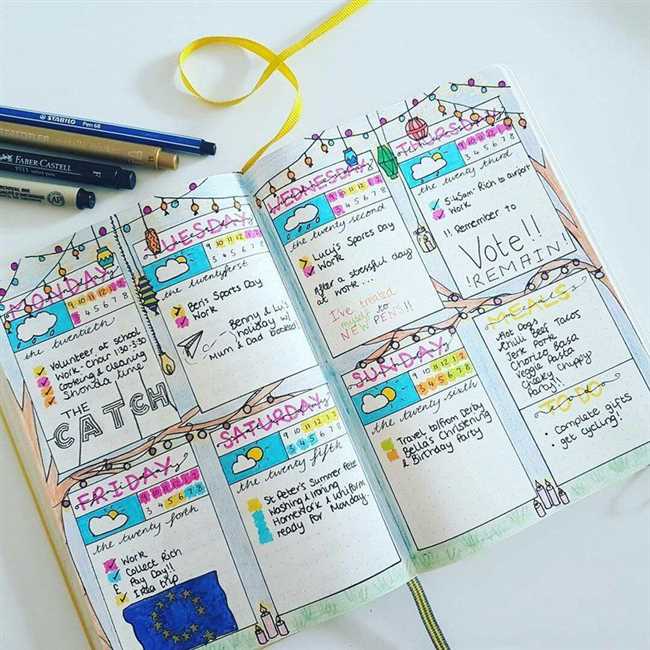 STABILO Pen 68
FABER-CASTELL
PITT artist pen F
MONDAY
9 10 11 12 1 2
3 4 5 6 7 8
the twentieth
Volunteer at school
Work. Choir 1:30-3:30
Cooking & Cleaning
Shonda time
THE
CATCH
TUESDAY
9 10 11 12 1 2
3 4 5 6 7 8
the twentyfirst
Ben's Sports Day
Work
Benny & Lu's
holiday w/
Mum & Dad booked!
FRIDAY
9 10 11 12 1 2
3 4 5 6 7 8
the twenty forth
Work
Collect Rich
£ Pay Day!!
Ikea trip
SATURDAY
9 10 11 12 1 2
3 4 5 6 7 8
the twenty fifth
St Peter's Summer Fete
Washing & Ironing
Homework & Uniform
ready for Monday
WEDNESDAY
9 10 11 12 1 2
3 4 5 6 7 8
the twenty second
Lucy's Sports Day
Work
After a stressful day
at work...
I've treated
myself to
NEW PENS!!
THURSDAY
9 10 11 12 1 2
3 4 5 6 7 8
the twenty third
5.45am Rich to airport
Work
!! Remember to
Vote!!
!REMAIN!
SUNDAY
9 10 11 12 1 2
3 4 5 6 7 8
the twenty sixth
Travel to/from Derby
Bella's Christening
& Birthday Party
MEALS
Hot Dogs
Chilli Beef Tacos
Jerk Pork
Chorizo Basa
Veggie Pasta
Cheeky Chippy
Party!!
TO DO
Complete gifts
get cycling!